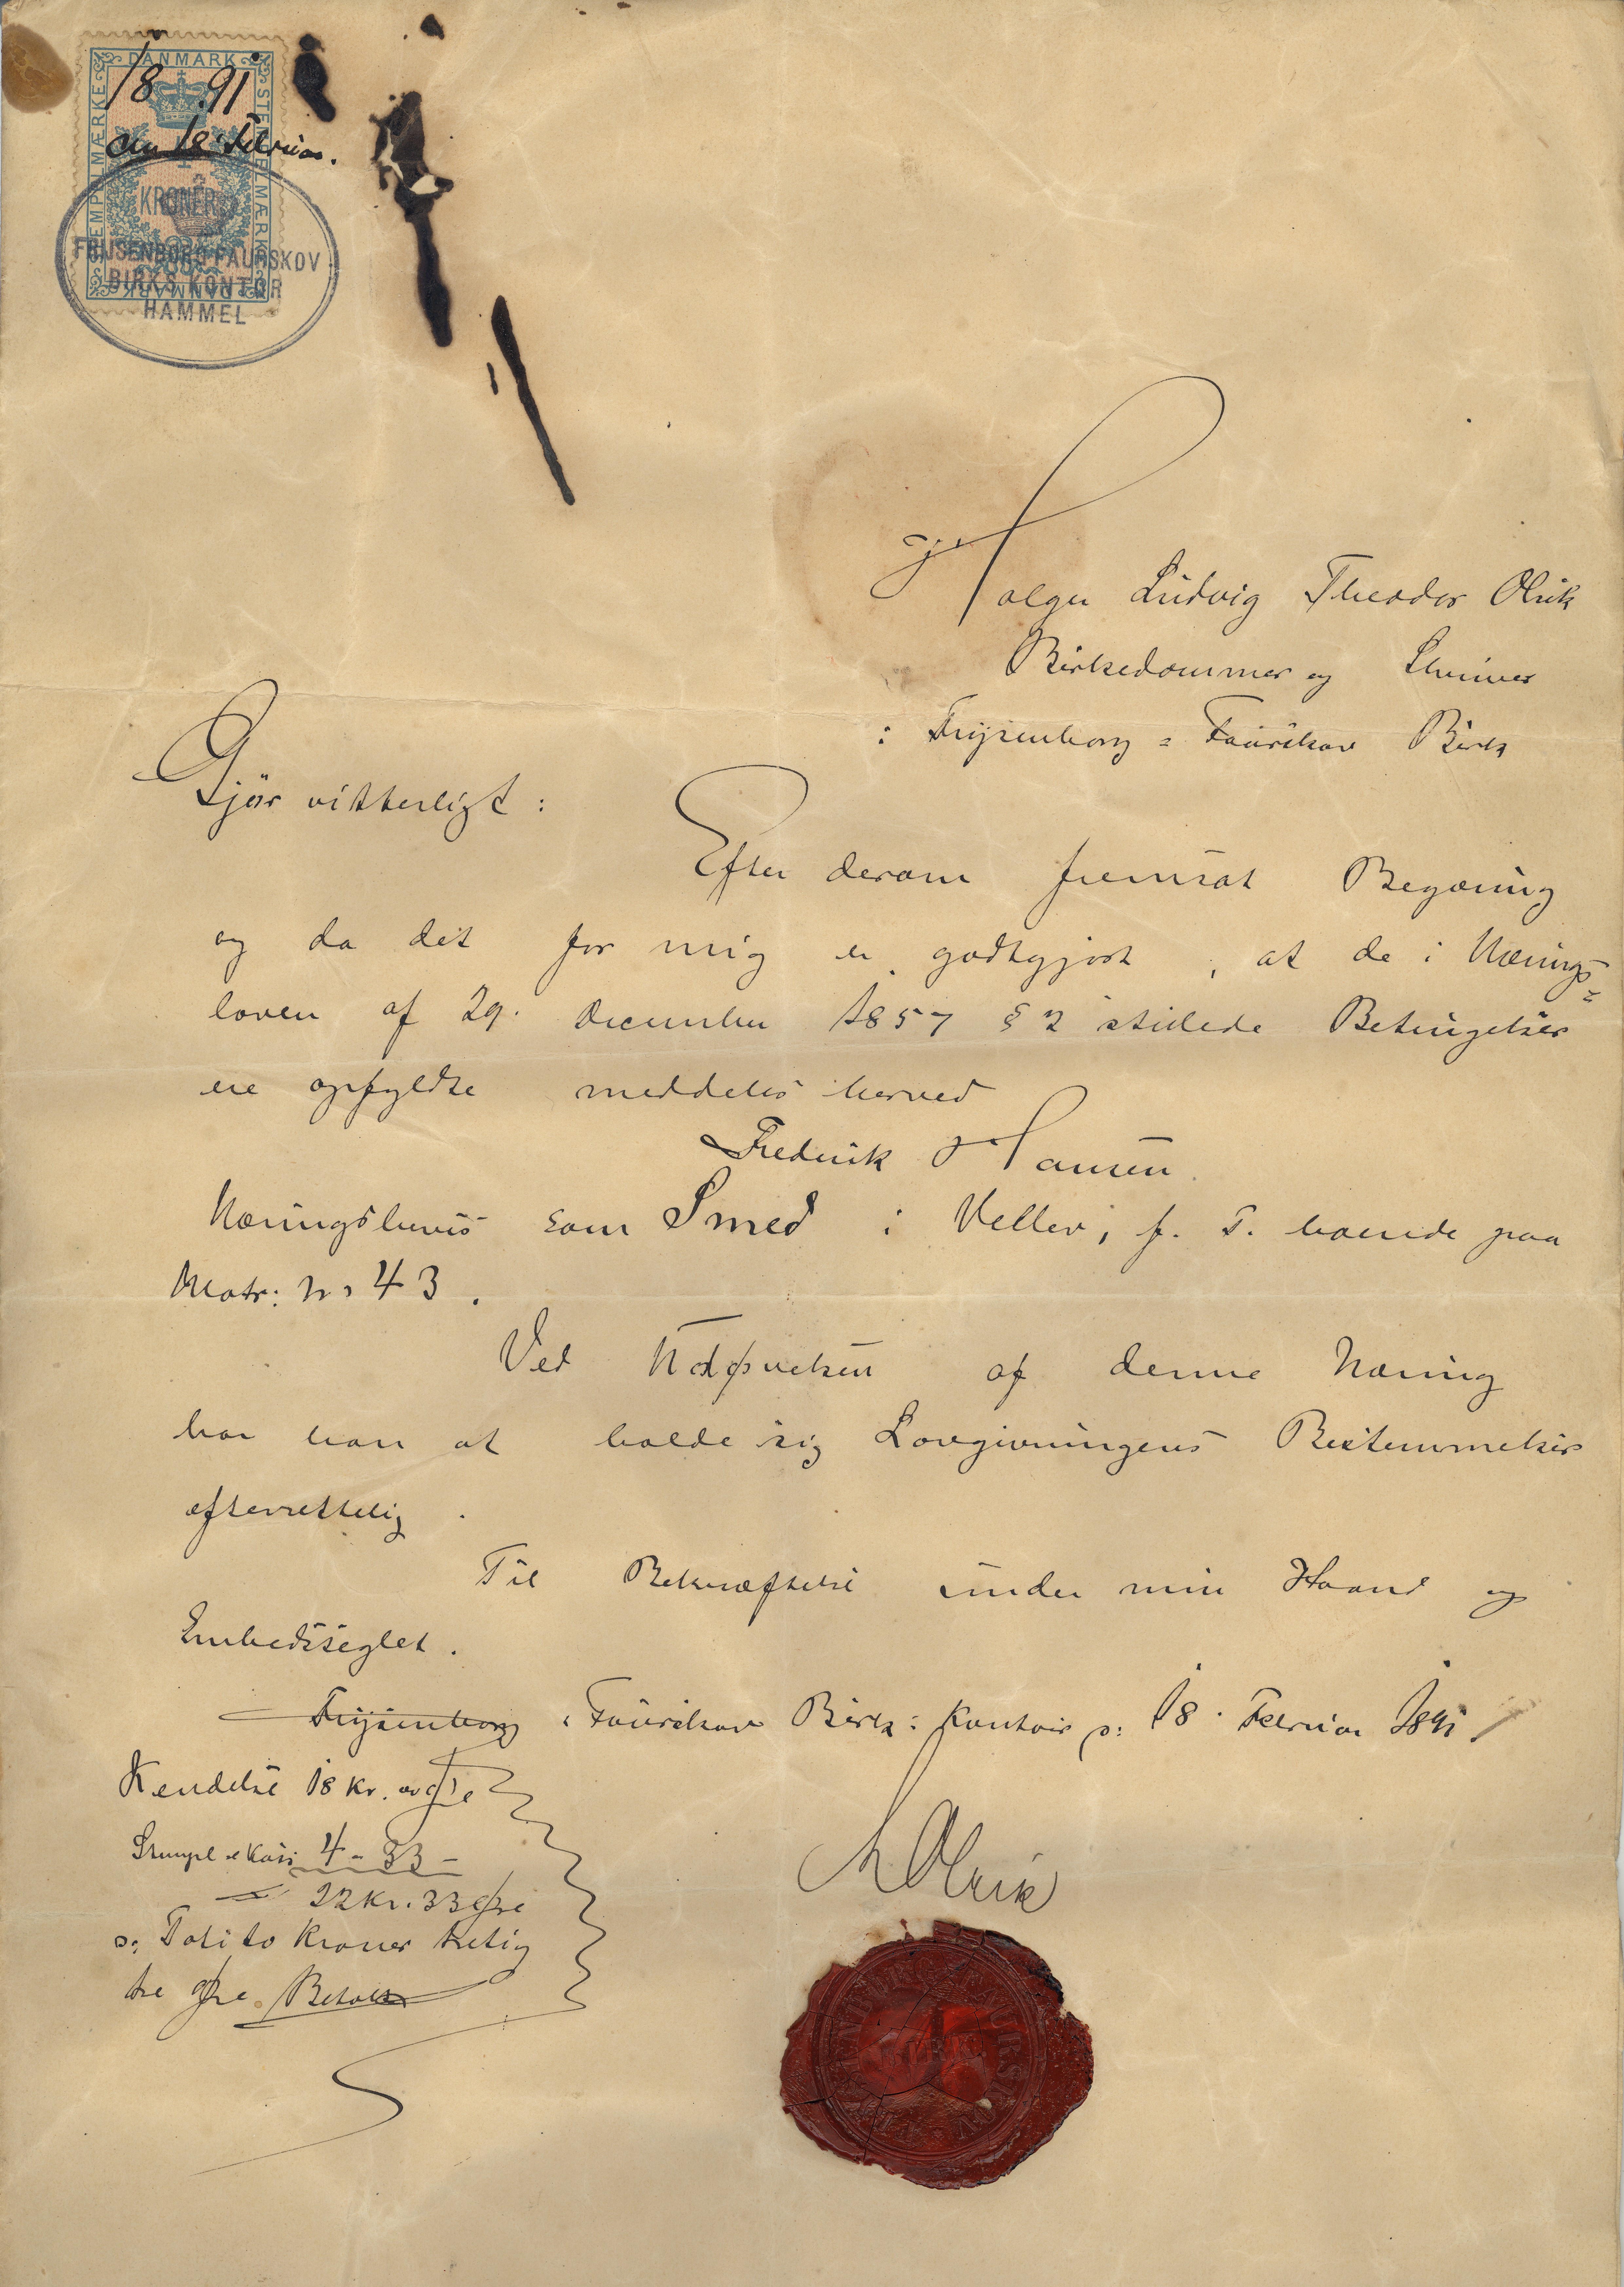 DANMARK
STEMPELMÆRKE
STEMPELMÆRKE
18 91
den 18 Februar.
KRONER
FRIJSENBORG FAURSKOV
BIRKS KONTOR
HAMMEL
Holger Ludvig Theodor Olrik
Birkedommer og Skriver
i Frijsenborg = Faurskov Birk
Gjør vitterligt:
Efter derom fremsat Begæring
og da det for mig er godtgjort, at de i Nærings=
loven af 29. December 1857 § 2 stillede Betingelser
ere opfyldte meddeles herved
Frederik Hansen
Næringsbevis som Smed i Vellev, p. T. boende paa
Matr: No 43.
Ved Udøvelsen af denne Næring
har han at holde sig Lovgivningens Bestemmelser
efterrettelig.
Til Bekræftelse under min Haand og
Embedsseglet.
Frijsenborg Faurskov Birks Kontoir p: 18. Februar 1891
Kendelse 18 Kr. Øre
Stempel 4 - 33 -
= 22 Kr. 33 Øre
o: Toti to Kroner treti
tre Øre. Betalt
HOlrik
FAURSKOV
BIRK